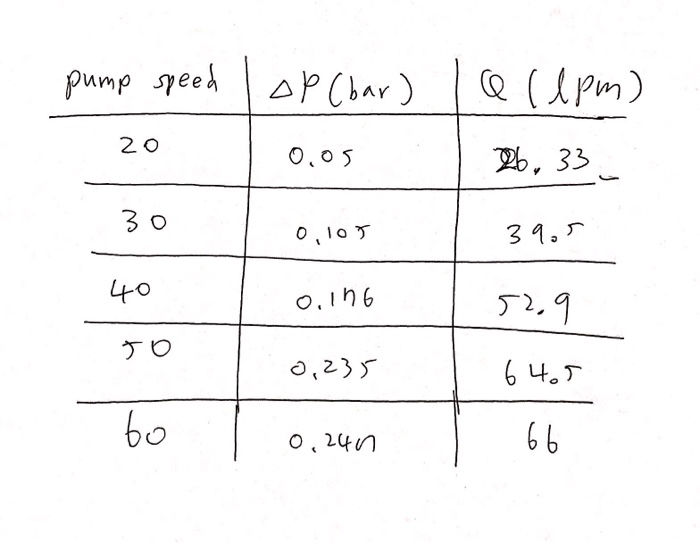 pump speed ΔP (bar) Q (lpm)
20 0.05 26.33
30 0.105 39.5
40 0.176 52.9
50 0.235 64.5
60 0.247 66